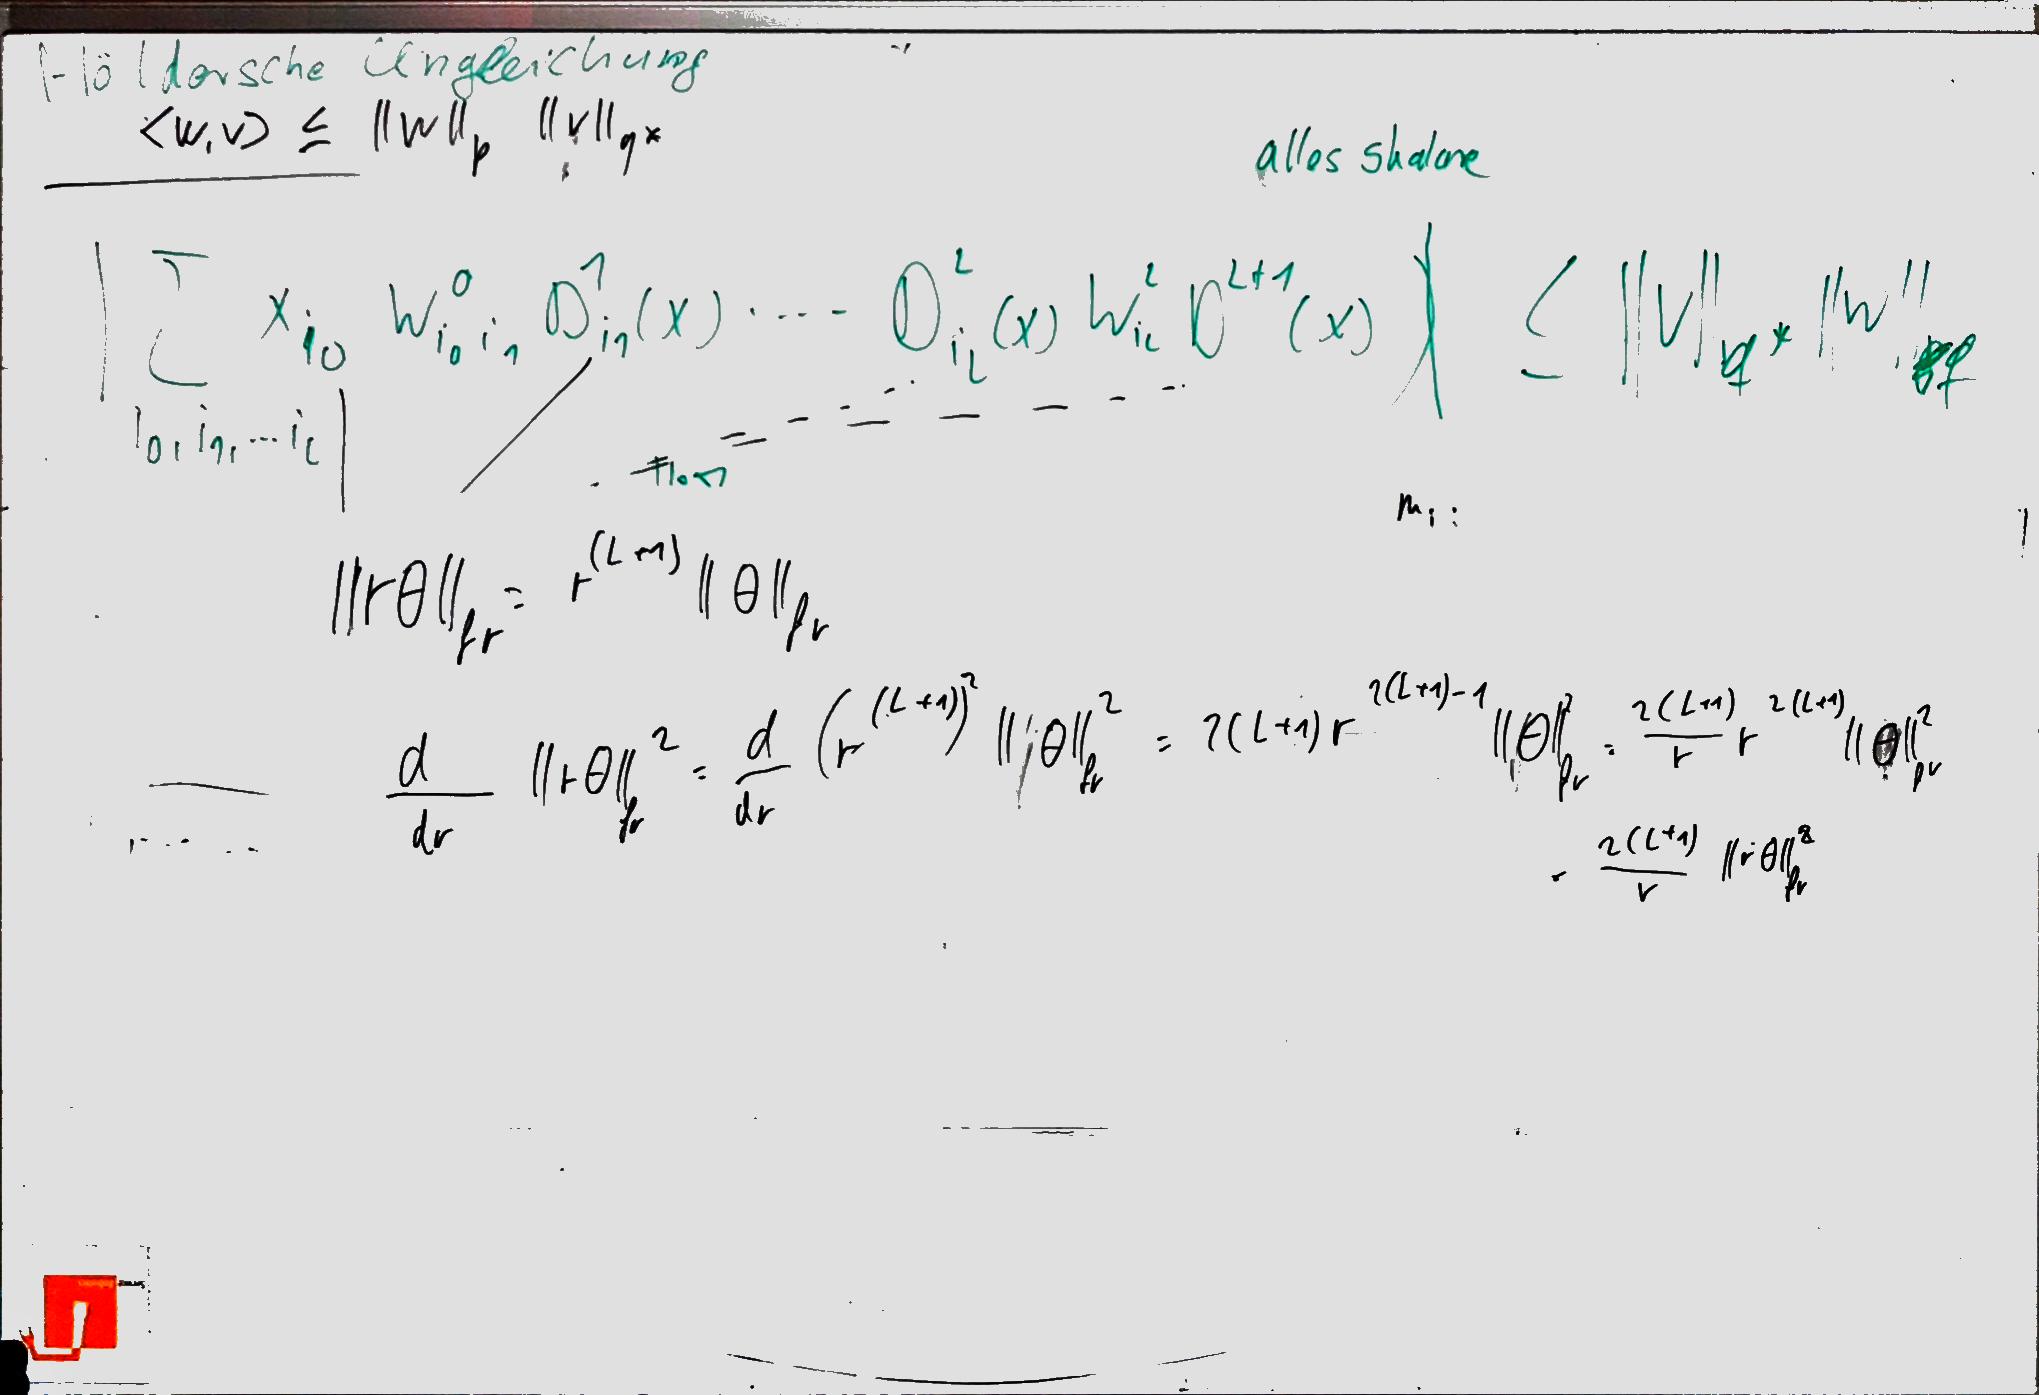 Höldersche Ungleichung
<w,v> ≤ ||w||_p ||v||_q*
alles Skalare
|∑ x_{i_0} W^0_{i_0 i_1} D^1_{i_1}(x) ..... D^L_{i_L}(x) W^L_{i_L} D^{L+1}(x)| ≤ ||v||_{q*} ||w||_q
i_0, i_1, ... i_L
m_i :
||rθ||_{fr} = r^{(L+1)} ||θ||_{fr}
d/dr ||rθ||²_{fr} = d/dr (r^{(L+1)})² ||θ||²_{fr} = 2(L+1) r^{2(L+1)-1} ||θ||²_{fr} = 2(L+1)/r r^{2(L+1)} ||θ||²_{fr}
= 2(L+1)/r ||rθ||²_{fr}